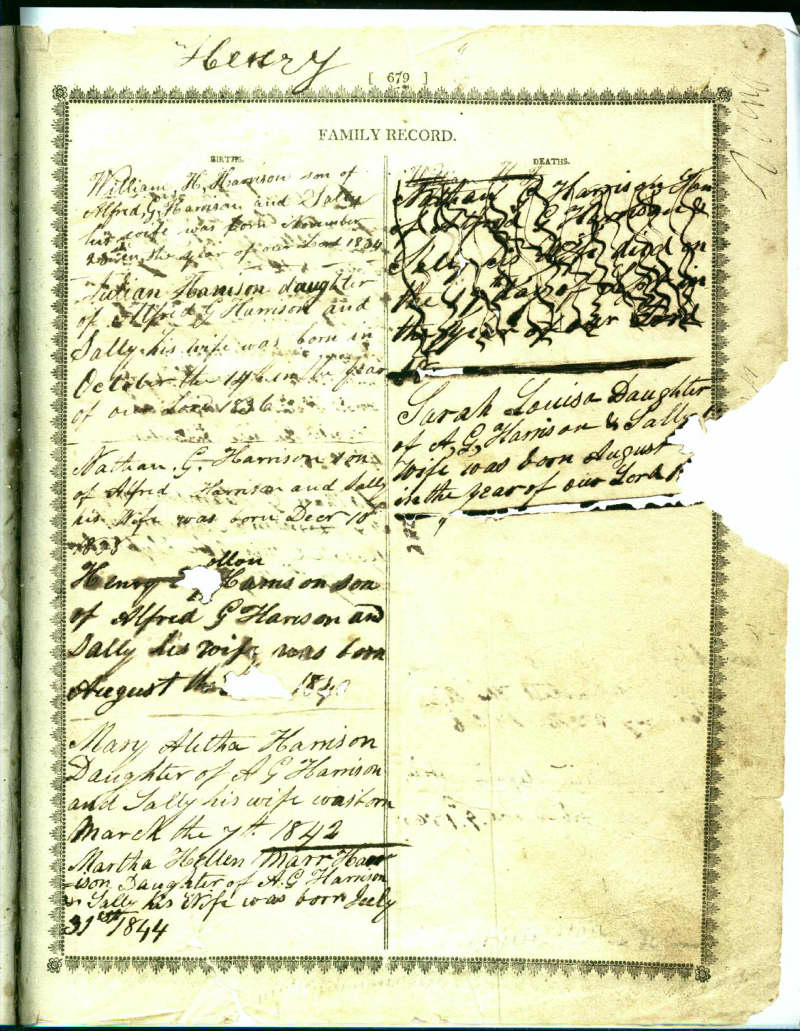 Henry
[ 679 ]
FAMILY RECORD.
BIRTHS.
William, H, Harrison son of
Alfred, G, Harrison and Sally
his wife was born November
in the year of our Lord 1834
Julian Harrison daughter
of Alfred G Harrison and
Sally his wife was born in
October the 14th in the year
of our Lord 1836
Nathan. G. Harrison son
of Alfred Harrison and Sally
his Wife was born Decr 10th
1838
Henry Harrison son
of Alfred G Harison and
Sally his wife was born
August the 1840
Mary Aletha Harrison
Daughter of A G Harrison
and Sally his wife was born
March the 7th 1842
Martha Hellen Marr Harr
=ison Daughter of A. G Harrison
& Sally his Wife was born July
31st 1844
DEATHS.
Nathan G Harrison
of Alfred G Harrison &
Sally his Wife died on
the day of in
the year of our Lord
Sarah Louisa Daughter
of A, G, Harrison & Sally
Wife was born August
in the year of our Lord